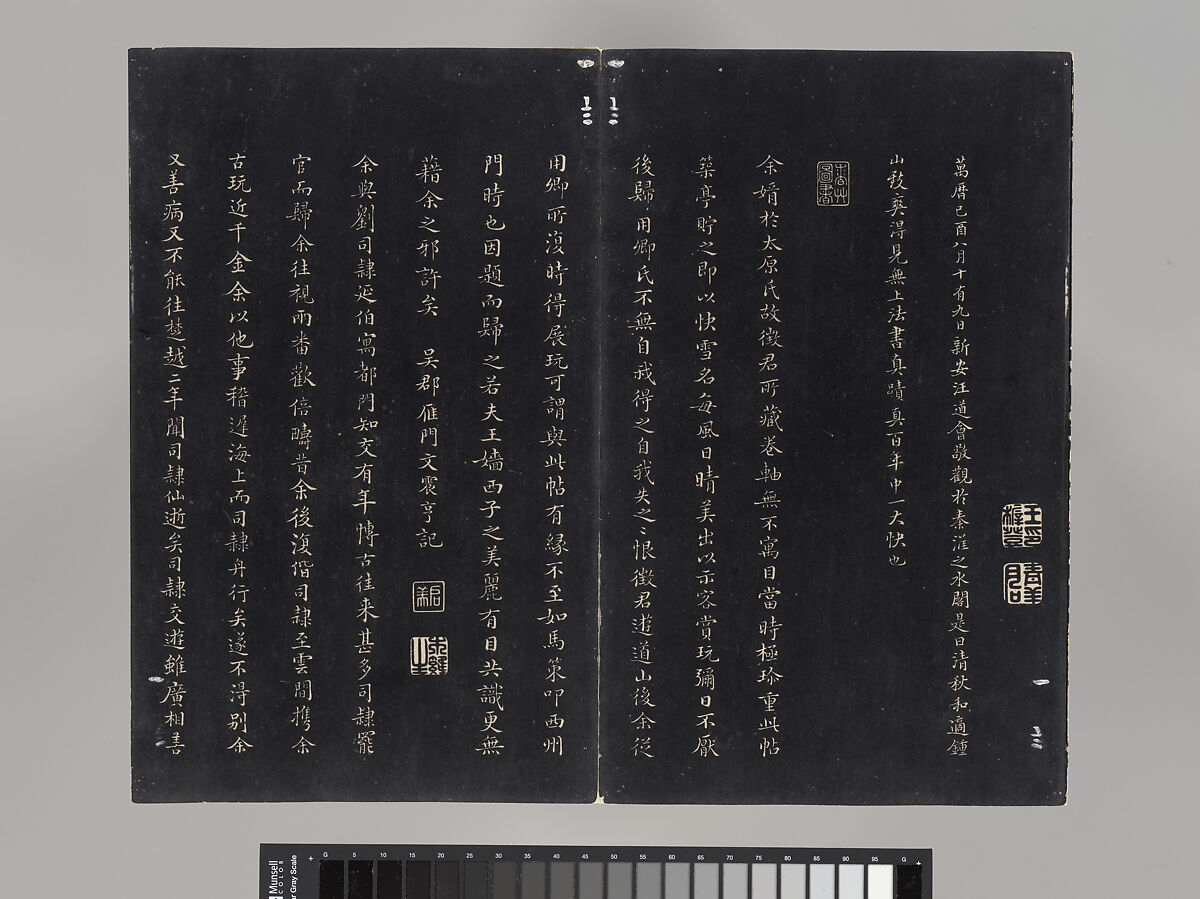 萬曆己酉八月十有九日新安汪道會敬觀於秦淮之水閣是日清秋和適鍾
山致爽得見無上法書真蹟真百年中一大快也
余婿於太原氏故徵君所藏卷軸無不寓目當時極珍重此帖
築亭貯之即以快雪名每風日晴美出以示客賞玩彌日不厭
後歸用卿氏不無自我得之自我失之〻恨徵君遊道山後余從
用卿所復時得展玩可謂與此帖有緣不至如馬策叩西州
門時也因題而歸之若夫王嬙西子之美麗有目共識更無
藉余之邪許矣　吳郡雁門文震亨記
余與劉司隸延伯寓都門知交有年博古往来甚多司隸罷
官而歸余往視兩番歡倍疇昔余後復偕司隸至雲間攜余
古玩近千金余以他事稽遲海上而司隸舟行矣遂不得別余
又善病又不能往楚越二年聞司隸仙逝矣司隸交遊雖廣相善
Munsell
COLOR
Gray Scale
G 5 10 15 20 25 30 35 40 45 50 55 60 65 70 75 80 85 90 95 G